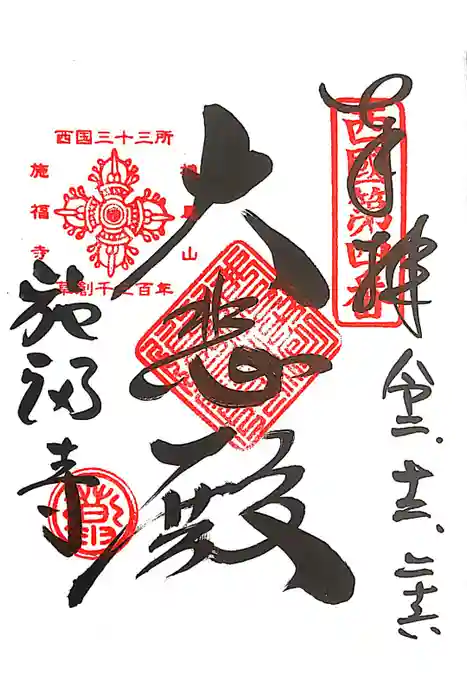 奉拝
西國第四番
令二.十二.二十六
大悲殿
西国三十三所
山
施福寺
草創千三百年
施福寺